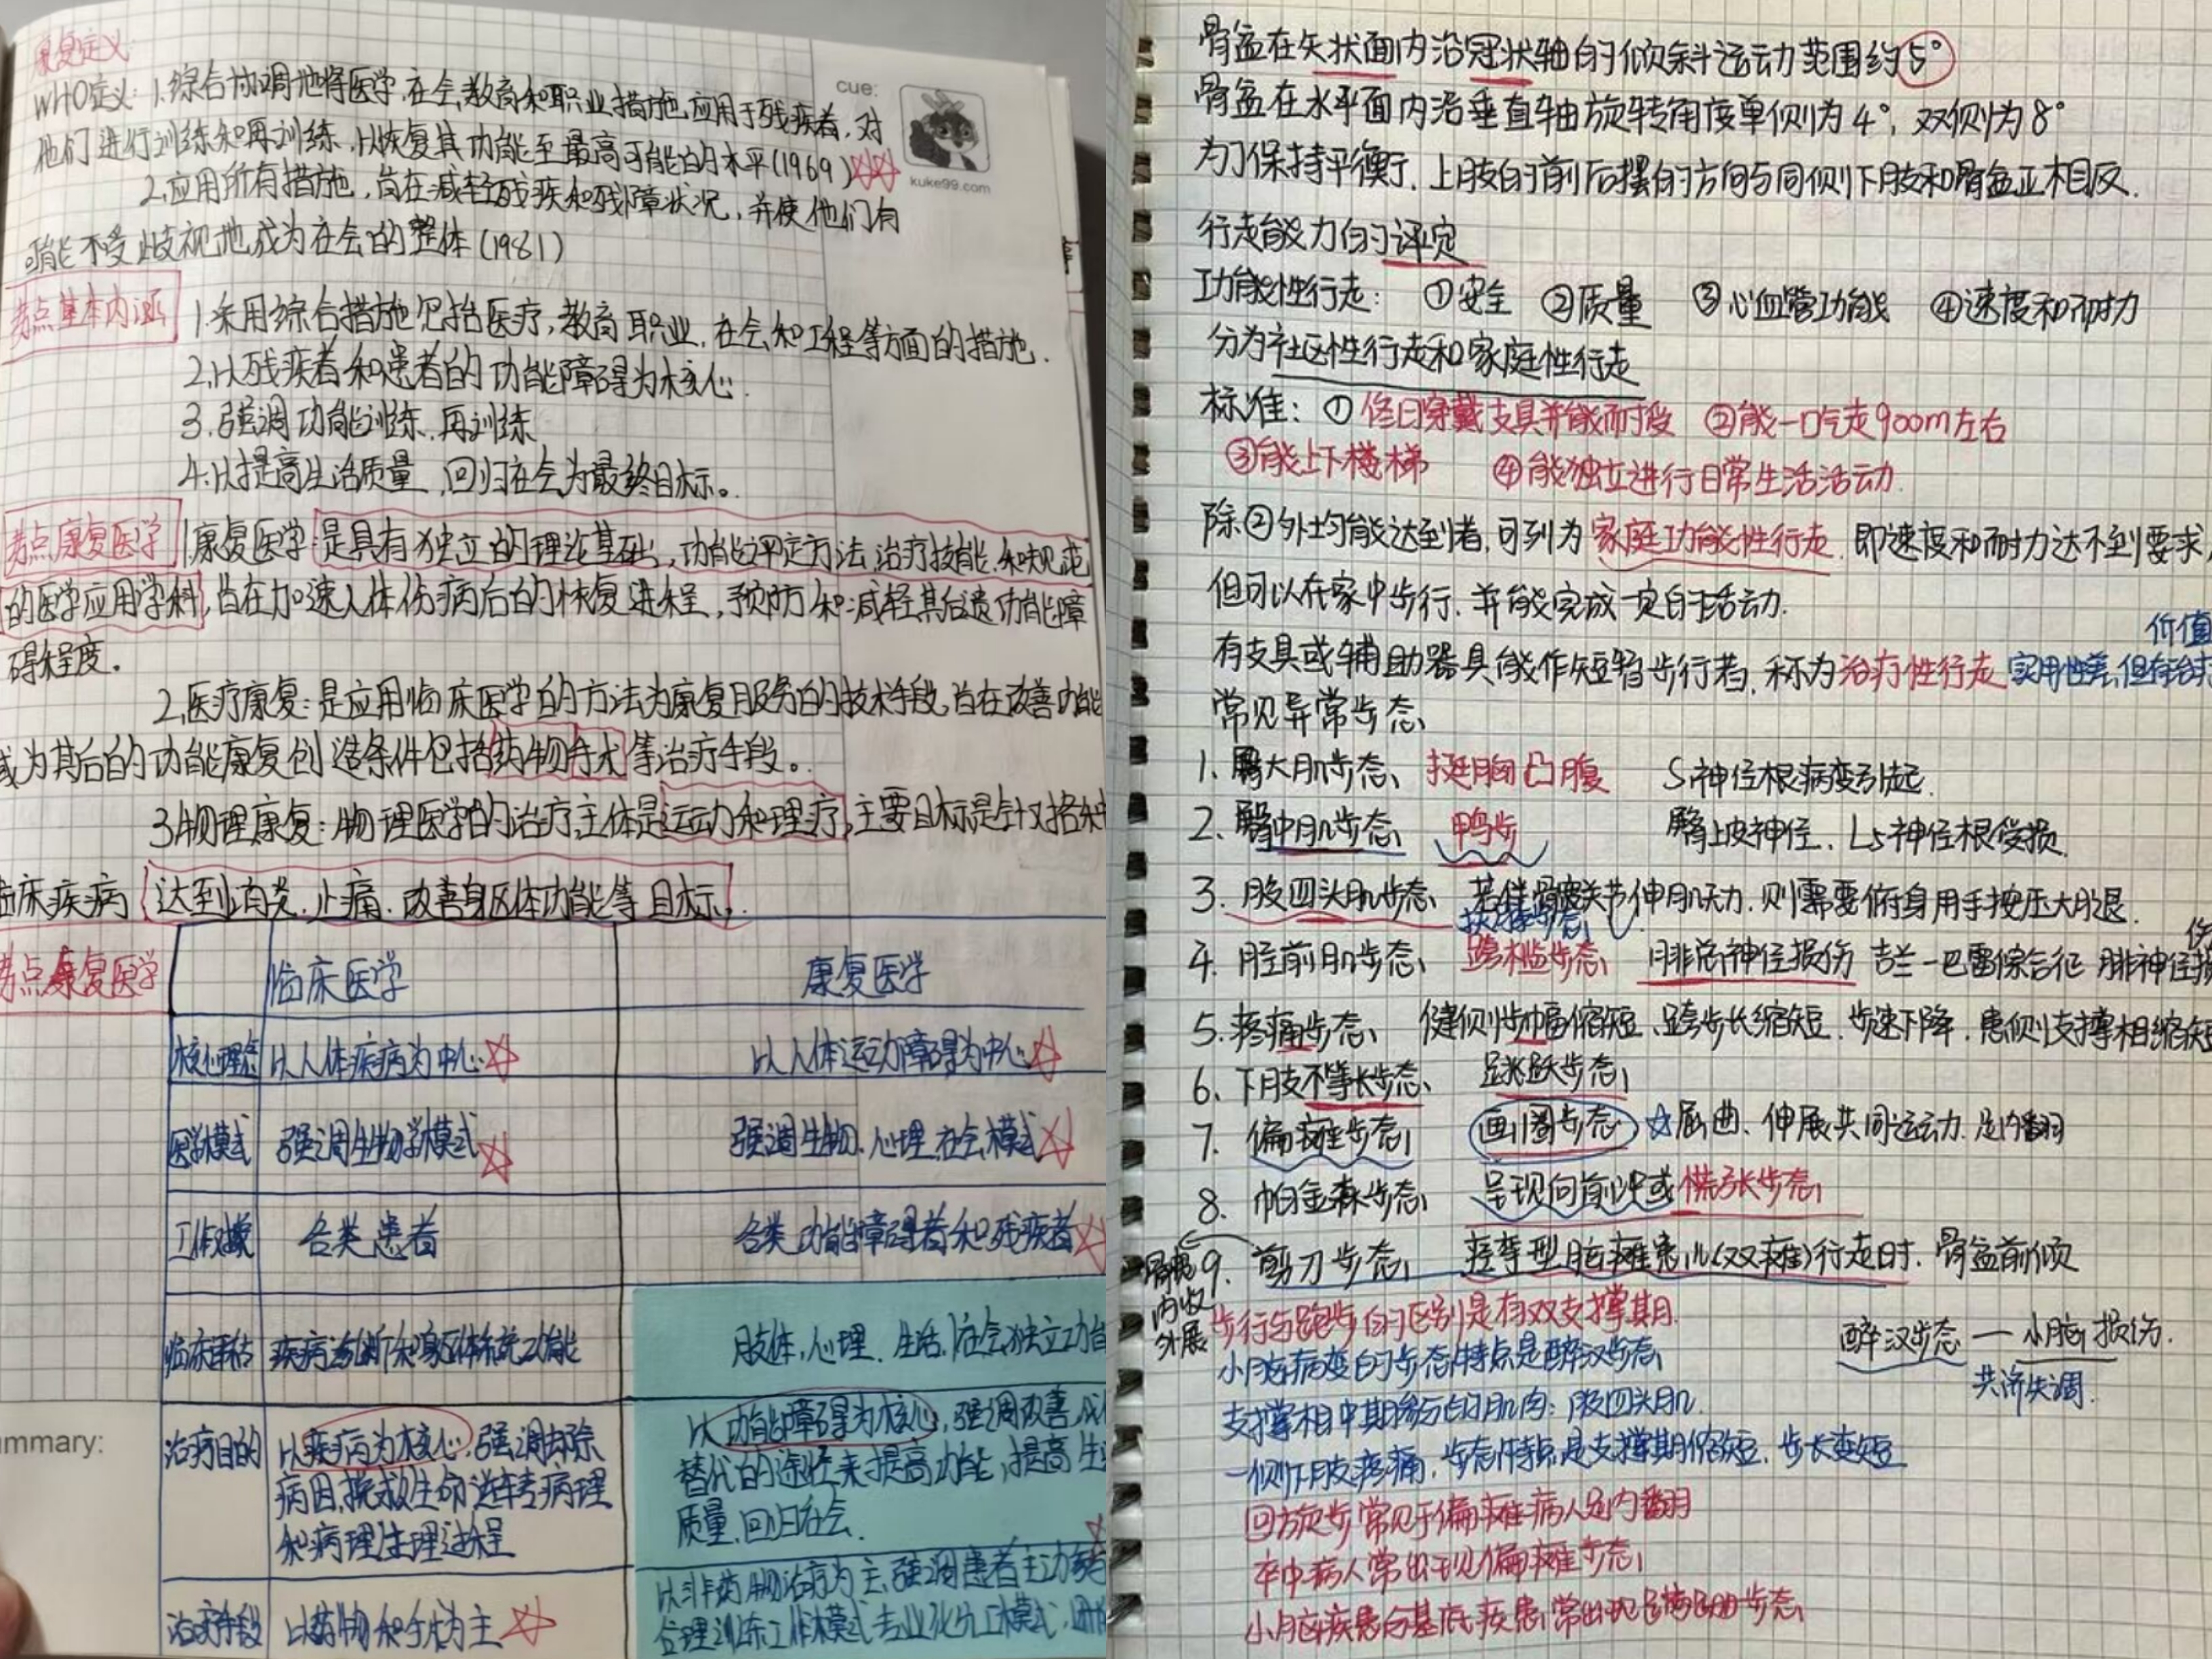 康复定义:
WHO定义: 1.综合协调地将医学.社会.教育和职业措施.应用于残疾者.对
他们进行训练和再训练.以恢复其功能至最高可能的水平(1969)
2.应用所有措施,旨在减轻残疾和残障状况,并使他们有
可能不受歧视地成为社会的整体(1981)
考点基本内涵
1.采用综合措施包括医疗,教育.职业.社会和工程等方面的措施.
2.以残疾者和患者的功能障碍为核心.
3.强调功能训练.再训练
4.以提高生活质量,回归社会为最终目标。
考点康复医学
1.康复医学:是具有独立的理论基础,功能评定方法.治疗技能.和规范
的医学应用学科,旨在加速人体伤病后的恢复进程,预防和减轻其后遗功能障
碍程度。
2.医疗康复:是应用临床医学的方法为康复服务的技术手段,旨在改善功能
或为其后的功能康复创造条件包括药物手术等治疗手段。
3.物理康复:物理医学的治疗主体是运动和理疗,主要目标是针对
临床疾病 达到消炎.止痛.改善身体功能等目标.
考点康复医学
临床医学 康复医学
核心理念 以人体疾病为中心 以人体运动障碍为中心
医学模式 强调生物学模式 强调生物.心理.社会模式
工作对象 各类患者 各类功能障碍者和残疾者
临床评估 疾病诊断和身体系统功能 肢体,心理.生活,社会独立功能
治疗目的 以疾病为核心,强调去除
病因,挽救生命,逆转病理
和病理生理过程
以功能障碍为核心,强调改善,
替代的途径来提高功能,提高生
质量,回归社会.
治疗手段 以药物和手术为主
以非药物治疗为主,强调患者主动
合理训练工作模式
cue:
kuke99.com
mmary:
骨盆在矢状面内沿冠状轴的倾斜运动范围约5°
骨盆在水平面内沿垂直轴旋转角度单侧为4°,双侧为8°
为了保持平衡,上肢的前后摆的方向与同侧下肢和骨盆正相反.
行走能力的评定
功能性行走: ①安全 ②质量 ③心血管功能 ④速度和耐力
分为社区性行走和家庭性行走
标准: ①终日穿戴支具并能耐受 ②能一口气走900m左右
③能上下楼梯 ④能独立进行日常生活活动.
除②外均能达到者,可列为家庭功能性行走.即速度和耐力达不到要求,
但可以在家中步行.并能完成一定的活动.
价值
有支具或辅助器具能作短暂步行者,称为治疗性行走 实用性差,但有治疗
常见异常步态
1.臀大肌步态 挺胸凸腹 S1神经根病变引起.
2.臀中肌步态 鸭步 臀上皮神经.L5神经根受损.
3.股四头肌步态 若伴髋关节伸肌无力.则需要俯身用手按压大腿.
扶膝步态
4.胫前肌步态 跨槛步态 腓总神经损伤 吉兰-巴雷综合征 腓神经损
伤
5.疼痛步态 健侧步幅缩短.跨步长缩短.步速下降.患侧支撑相缩短
6.下肢不等长步态 跳跃步态
7.偏瘫步态 画圈步态 ☆屈曲.伸展共同运动.足内翻
8.帕金森步态 呈现向前冲或慌张步态
9.剪刀步态 痉挛型脑瘫患儿(双瘫)行走时.骨盆前倾
髋
内收
外展
步行与跑步的区别是有双支撑期.
醉汉步态 — 小脑损伤.
共济失调.
小脑病变的步态特点是醉汉步态
支撑相中期参与的肌肉:股四头肌.
一侧下肢疼痛,步态特点是支撑期缩短.步长变短
回旋步常见于偏瘫病人足内翻
卒中病人常出现偏瘫步态
小脑疾患与基底疾患常出现蹒跚步态